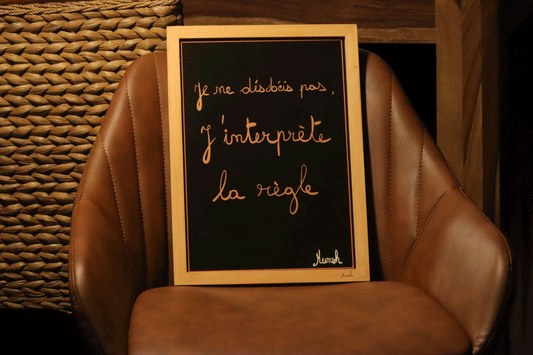 Je ne désobéis pas,
J'interprète
la règle